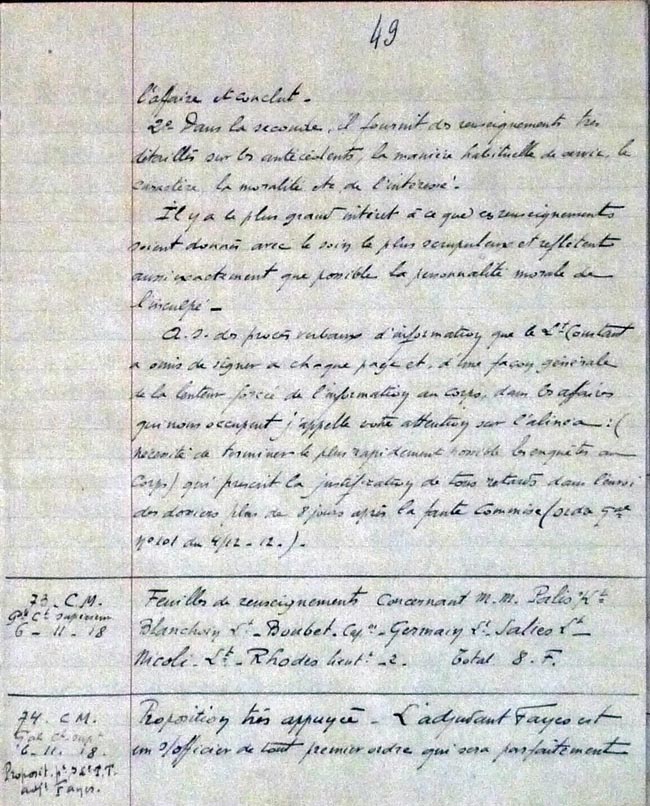 49
l'affaire et conclut.
2° Dans la seconde, il fournit des renseignements très
détaillés sur les antécédents, la manière habituelle de servir, le
caractère, la moralité etc de l'intéressé.
Il y a le plus grand intérêt à ce que ces renseignements
soient donnés avec le soin le plus scrupuleux et reflètent
aussi exactement que possible la personnalité morale de
l'inculpé -
A.S. des procès verbaux d'information que le Lt Constant
a omis de signer à chaque page et, d'une façon générale
de la lenteur forcée de l'information au corps, dans les affaires
qui nous occupent j'appelle votre attention sur l'alinéa : (
nécessité de terminer le plus rapidement possible les enquêtes au
Corps) qui prescrit la justification de tous retards dans l'envoi
des dossiers plus de 8 jours après la faute commise (
n° 101 du 4/12-12.).
73. C.M.
Gal Ct supérieur
6 - 11. 18
Feuilles de renseignements concernant M.M. Lt
Blanchoin Lt - Boubet. - Germain Lt. Salies Lt -
Nicoli. Lt - Rhodes lieutt - 2. Total 8. F.
74. C.M.
Gal Ct supr
6. 11. 18.
Proposit. pr
adjt Fayes.
Proposition très appuyée - L'adjudant Fayes est
un s/officier de tout premier ordre qui sera parfaitement